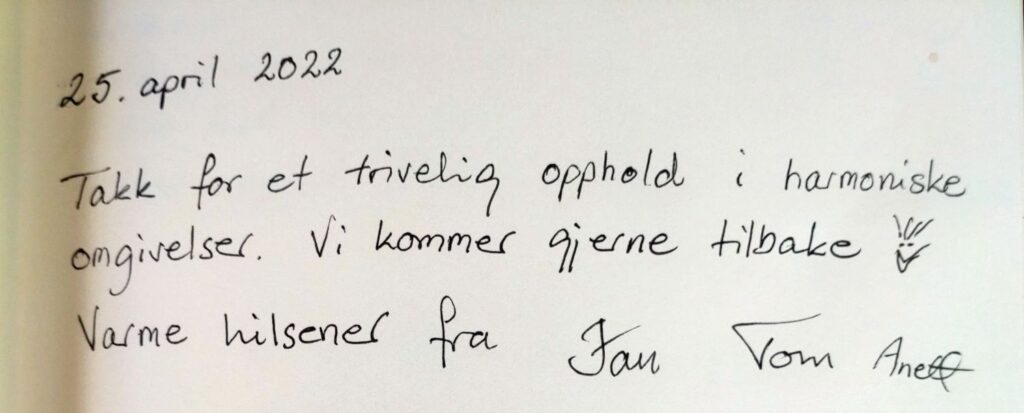 25. april 2022
Takk for et trivelig opphold i harmoniske
omgivelser. Vi kommer gjerne tilbake
Varme hilsener fra Jan Tom Anett